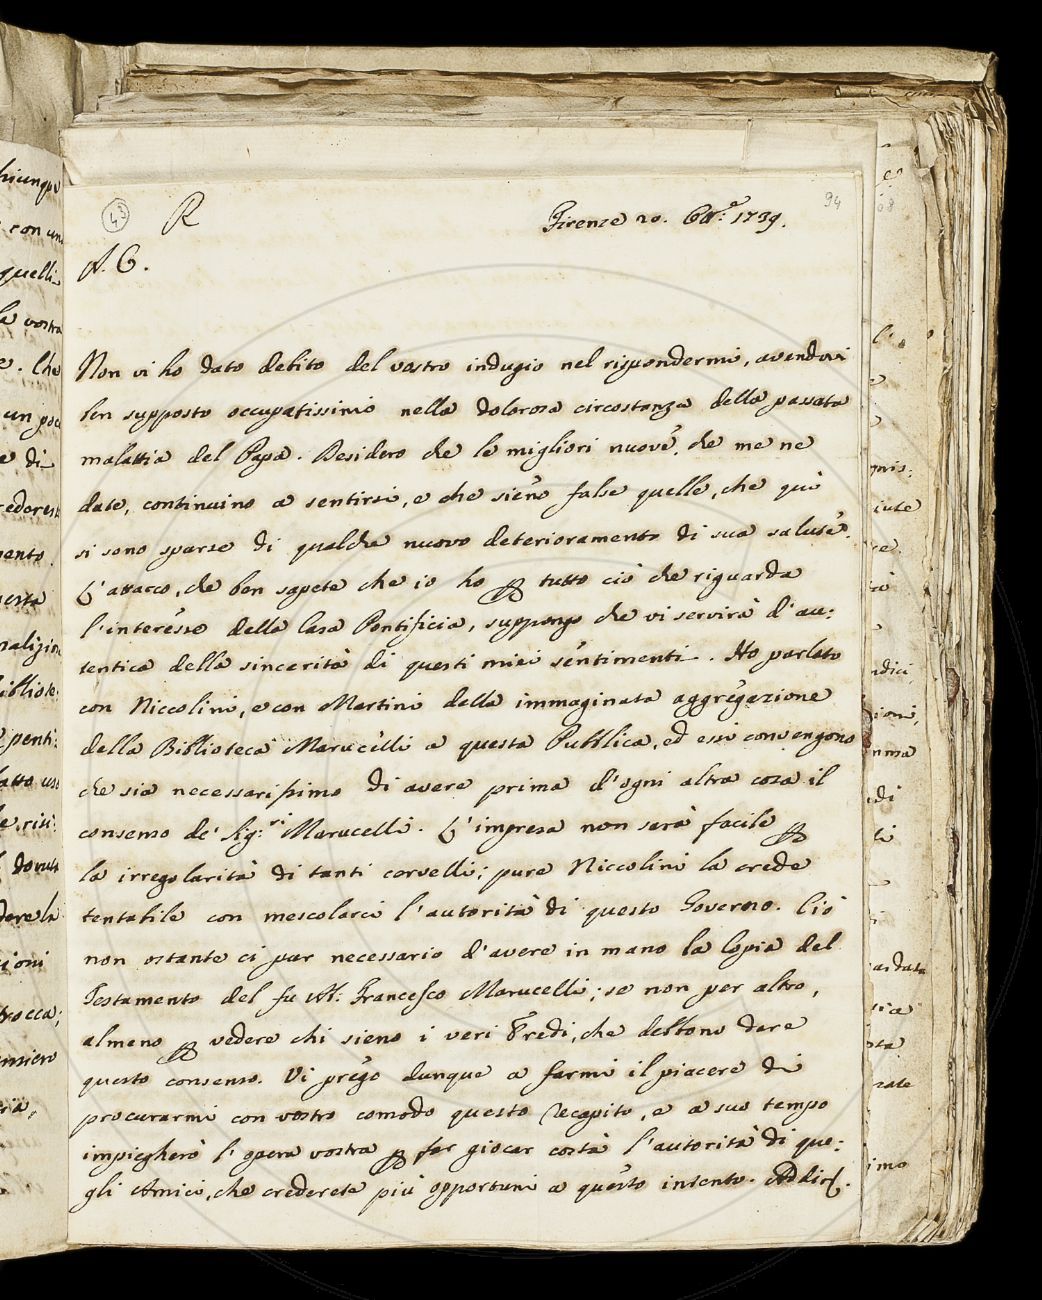 43
R
94
Firenze 20. Ott.e 1739.
A. C.
Non vi ho dato debito del vostro indugio nel rispondermi, avendovi
ben supposto occupatissimo nella dolorosa circostanza della passata
malattia del Papa. Desidero che le migliori nuove, che me ne
date, continuino a sentirsi, e che sieno false quelle, che quì
si sono sparse di qualche nuovo deterioramento di sua salute.
L'attacco, che ben sapete che io ho per tutto ciò che riguarda
l'interesse della Casa Pontificia, suppongo che vi servirà d'au:
tentica della sincerità di questi miei sentimenti. Ho parlato
con Niccolini, e con Martini della immaginata aggregazione
della Biblioteca Marucelli a questa Pubblica, ed essi convengono
che sia necessarissimo di avere prima d'ogni altra cosa il
consenso de' Sig:ri Marucelli. L'impresa non sarà facile per
la irregolarità di tanti cervelli; pure Niccolini la crede
tentabile con mescolarci l'autorità di questo Governo. Ciò
non ostante ci par necessario d'avere in mano la Copia del
Testamento del fu A: Francesco Marucelli; se non per altro,
almeno per vedere chi sieno i veri Eredi, che debbono dare
questo consenso. Vi prego dunque a farmi il piacere di
procurarmi con vostro comodo questo recapito, e a suo tempo
impiegherò l'opera vostra per far giocar costà l'autorità di que:
gli Amici, che crederete più opportuni a questo intento.